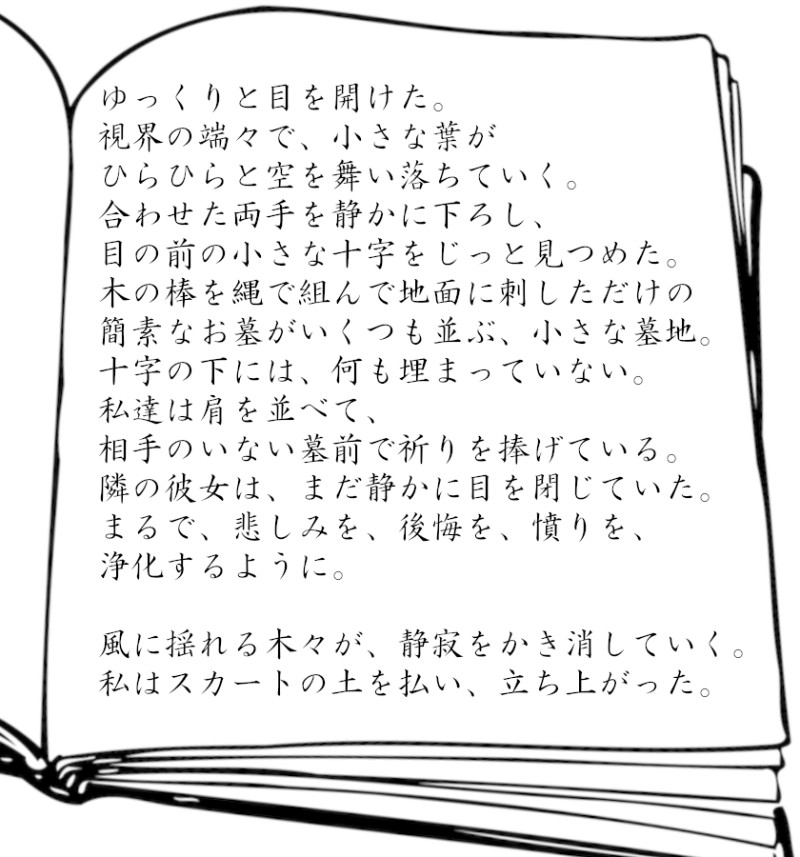 ゆっくりと目を開けた。
視界の端々で、小さな葉が
ひらひらと空を舞い落ちていく。
合わせた両手を静かに下ろし、
目の前の小さな十字をじっと見つめた。
木の棒を縄で組んで地面に刺しただけの
簡素なお墓がいくつも並ぶ、小さな墓地。
十字の下には、何も埋まっていない。
私達は肩を並べて、
相手のいない墓前で祈りを捧げている。
隣の彼女は、まだ静かに目を閉じていた。
まるで、悲しみを、後悔を、憤りを、
浄化するように。
風に揺れる木々が、静寂をかき消していく。
私はスカートの土を払い、立ち上がった。